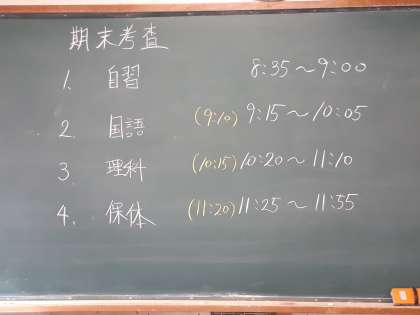 期末考査
1. 自習 8:35〜9:00
2. 国語 (9:10) 9:15〜10:05
3. 理科 (10:15) 10:20〜11:10
4. 保体 (11:20) 11:25〜11:55